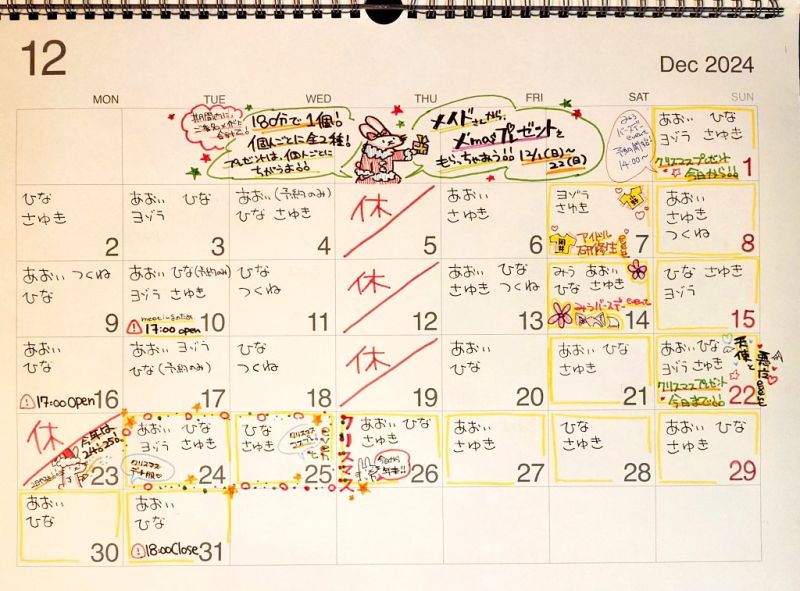 12
Dec 2024
MON TUE WED THU FRI SAT SUN
180分で1個!
個人ごとに全2種!
プレゼントは、個人ごとに
ちがうよう!!
メイドさんから、
X'masプレゼントを
もらっちゃおう!!
12/1(日)〜
22(日)
みう
バースデー
event
予約開始!
14:00〜
あおい ひな
ヨゾラ さゆき
クリスマスプレゼント
今日から!!
1
ひな
さゆき
2
あおい ひな
ヨゾラ
3
あおい(予約のみ)
ひな さゆき
4
休
5
あおい
さゆき
6
ヨゾラ
さゆき
アイドル
研修生
event
7
あおい
さゆき
つくね
8
あおい つくね
ひな
9
あおい ひな(予約のみ)
ヨゾラ さゆき
meetingのため
17:00 open
10
ひな
つくね
11
休
12
あおい ひな
さゆき つくね
13
みう あおい
ひな さゆき
みうバースデーevent
14
ひな さゆき
ヨゾラ
15
あおい
ひな
17:00 Open
16
あおい ヨゾラ
ひな(予約のみ)
17
ひな
つくね
18
休
19
あおい
ひな
20
あおい ひな
さゆき
21
あおい ひな
ヨゾラ さゆき
クリスマスプレゼント
今日まで!!
22
天使と
悪魔event
休
今年は、
24:25!!
23
あおい ひな
ヨゾラ さゆき
クリスマス
24
ひな
さゆき
クリスマス
25
クリスマス
あおい ひな
さゆき
26
あおい ひな
さゆき
27
ひな
さゆき
28
あおい ひな
さゆき
29
あおい
ひな
30
あおい
ひな
18:00 Close
31